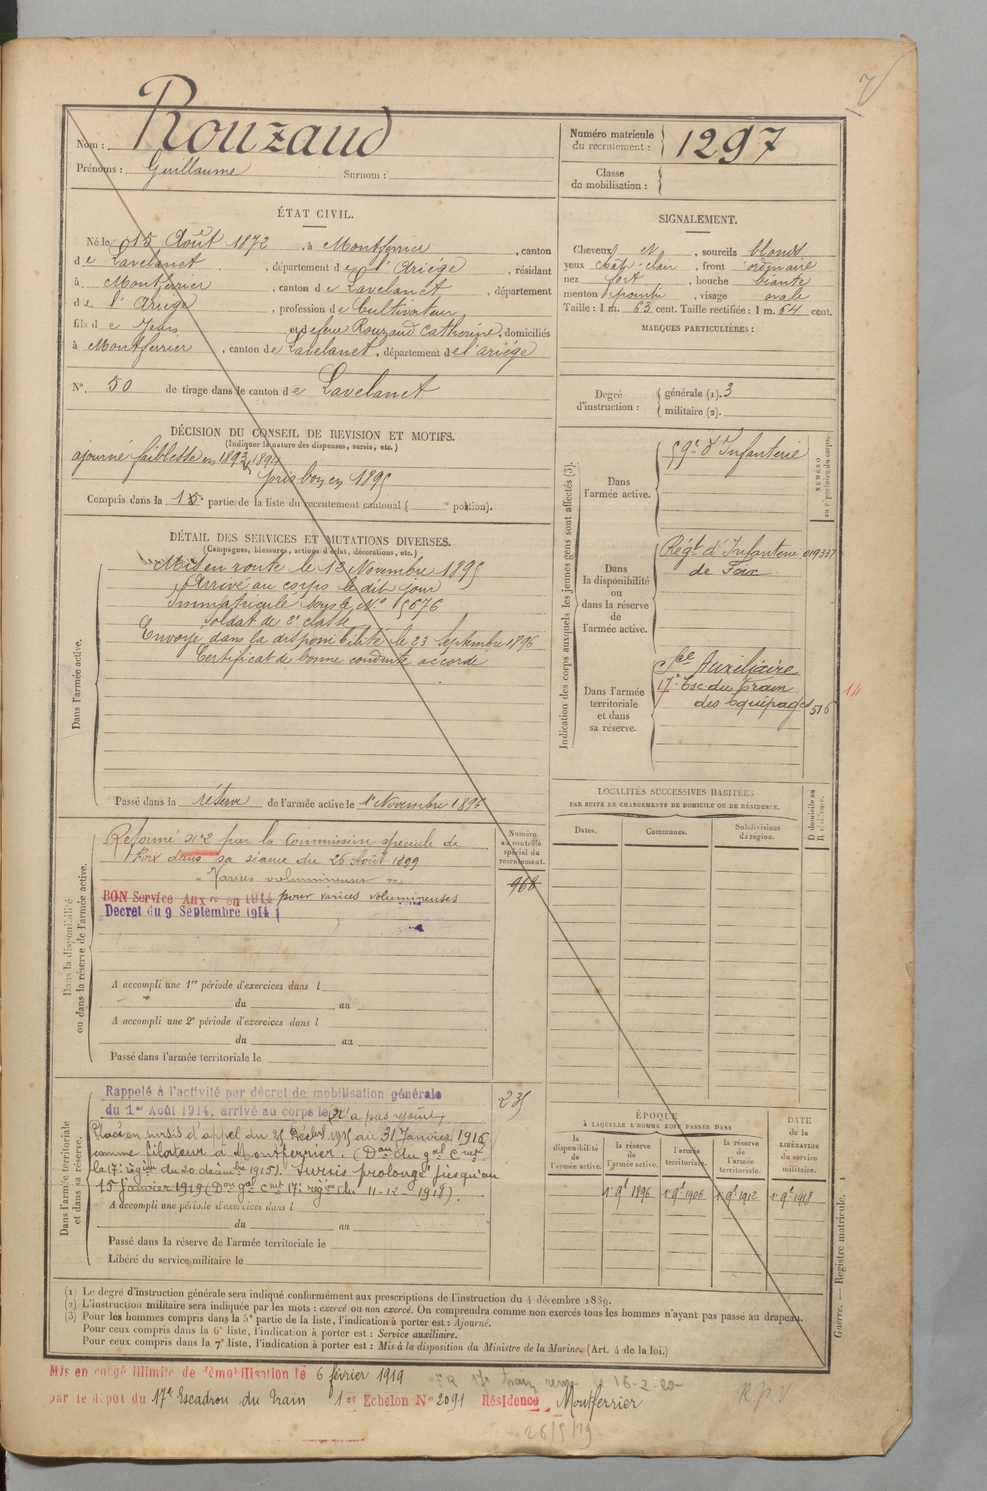 Nom : Rouzaud
Prénoms : Guillaume Surnom :
Numéro matricule du recrutement : 1297
Classe de mobilisation :
ÉTAT CIVIL.
Né le 15 Août 1872, à Montferrier, canton
de Lavelanet, département de l'Ariége, résidant
à Montferrier, canton de Lavelanet, département
de l'Ariége, profession de Cultivateur
fils de Jean et de feue Rouzaud Catherine, domiciliés
à Montferrier, canton de Lavelanet, département de l'ariége
N° 50 de tirage dans le canton de Lavelanet
SIGNALEMENT.
Cheveux N, sourcils blonds
yeux chât. clair, front ordinaire
nez fort, bouche béante
menton pointu, visage ovale
Taille : 1 m. 63 cent. Taille rectifiée : 1 m. 64 cent.
MARQUES PARTICULIÈRES :
Degré d'instruction : générale (1). 3
militaire (2).
DÉCISION DU CONSEIL DE REVISION ET MOTIFS.
(Indiquer la nature des dispenses, sursis, etc.)
ajourné faiblesse en 1893, 1894
pris bon en 1895
Compris dans la 1e partie de la liste du recrutement cantonal ( portion).
DÉTAIL DES SERVICES ET MUTATIONS DIVERSES.
(Campagnes, blessures, actions d'éclat, décorations, etc.)
Dans l'armée active.
Mis en route le 13 Novembre 1895
Arrivé au corps le dit jour
Immatriculé sous le N° 15676
Soldat de 2e classe
Envoyé dans la disponibilité le 23 Septembre 1896
Certificat de bonne conduite accordé
Passé dans la réserve de l'armée active le 1er Novembre 1896
Indication des corps auxquels les jeunes gens sont affectés (3).
NUMÉRO au répertoire du corps.
Dans l'armée active.
59e d'Infanterie
Dans la disponibilité ou dans la réserve de l'armée active.
Régt d'Infanterie 019337
de Foix
Dans l'armée territoriale et dans sa réserve.
Sce Auxiliaire
17e Esc. du Train
des équipages 516
14
Dans la disponibilité ou dans la réserve de l'armée active.
Numéro au contrôle spécial du recrutement.
968
Réformé n° 2 par la Commission spéciale de
Foix dans sa séance du 26 Août 1899
Varices volumineuses
BON Service Auxre en 1914 pour varices volumineuses
Decret du 9 Septembre 1914
A accompli une 1re période d'exercices dans l
du au
A accompli une 2e période d'exercices dans l
du au
Passé dans l'armée territoriale le
LOCALITÉS SUCCESSIVES HABITÉES
PAR SUITE DE CHANGEMENTS DE DOMICILE OU DE RÉSIDENCE.
Dates. Communes. Subdivisions de région. D domicile ou R résidence.
Dans l'armée territoriale et dans sa réserve.
235
Rappelé à l'activité par décret de mobilisation générale
du 1er Août 1914, arrivé au corps le (N'a pas rejoint)
Placé en sursis d'appel du 25 Décbre 1915 au 31 Janvier 1916
comme filateur à Montferrier. (Don du gal Cmt
la 17e région du 20 décembre 1915). Sursis prolongé jusqu'au
15 janvier 1919 (Don gal Cmt 17e région du 11-12-1918).
A accompli une période d'exercices dans l
du au
Passé dans la réserve de l'armée territoriale le
Libéré du service militaire le
ÉPOQUE
À LAQUELLE L'HOMME DOIT PASSER DANS
la disponibilité de l'armée active. la réserve de l'armée active. l'armée territoriale. la réserve de l'armée territoriale.
DATE de la LIBÉRATION du service militaire.
1er 9e 1896 1er 9e 1906 1er 9e 1912 1er 9e 1918
(1) Le degré d'instruction générale sera indiqué conformément aux prescriptions de l'instruction du 4 décembre 1889.
(2) L'instruction militaire sera indiquée par les mots : exercé ou non exercé. On comprendra comme non exercés tous les hommes n'ayant pas passé au drapeau.
(3) Pour les hommes compris dans la 5e partie de la liste, l'indication à porter est : Ajourné.
Pour ceux compris dans la 6e liste, l'indication à porter est : Service auxiliaire.
Pour ceux compris dans la 7e liste, l'indication à porter est : Mis à la disposition du Ministre de la Marine. (Art. 4 de la loi.)
Guerre. — Registre matricule. 1
Mis en congé illimité de démobilisation le 6 février 1919
par le dépôt du 17e Escadron du Train 1er Echelon N° 2091 Résidence Montferrier
le 16-2-20
26/5/19